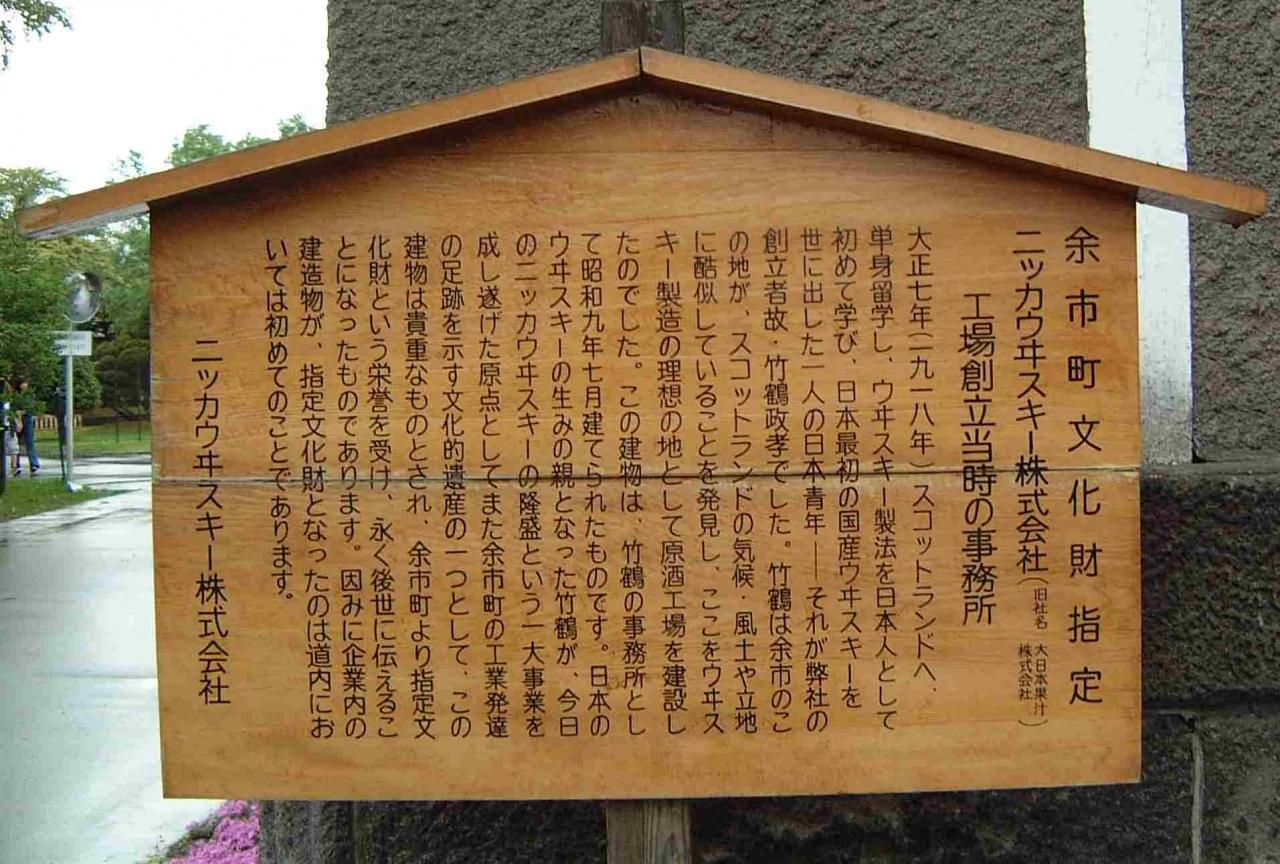 余市町文化財指定
ニッカウヰスキー株式会社(旧社名 大日本果汁株式会社)
工場創立当時の事務所
大正七年(一九一八年)スコットランドへ、
単身留学し、ウヰスキー製法を日本人として
初めて学び、日本最初の国産ウヰスキーを
世に出した一人の日本青年――それが弊社の
創立者故・竹鶴政孝でした。竹鶴は余市のこ
の地が、スコットランドの気候・風土や立地
に酷似していることを発見し、ここをウヰス
キー製造の理想の地として原酒工場を建設し
たのでした。この建物は、竹鶴の事務所とし
て昭和九年七月建てられたものです。日本の
ウヰスキーの生みの親となった竹鶴が、今日
のニッカウヰスキーの隆盛という一大事業を
成し遂げた原点としてまた余市町の工業発達
の足跡を示す文化的遺産の一つとして、この
建物は貴重なものとされ、余市町より指定文
化財という栄誉を受け、永く後世に伝えるこ
とになったものであります。因みに企業内の
建造物が、指定文化財となったのは道内にお
いては初めてのことであります。
ニッカウヰスキー株式会社